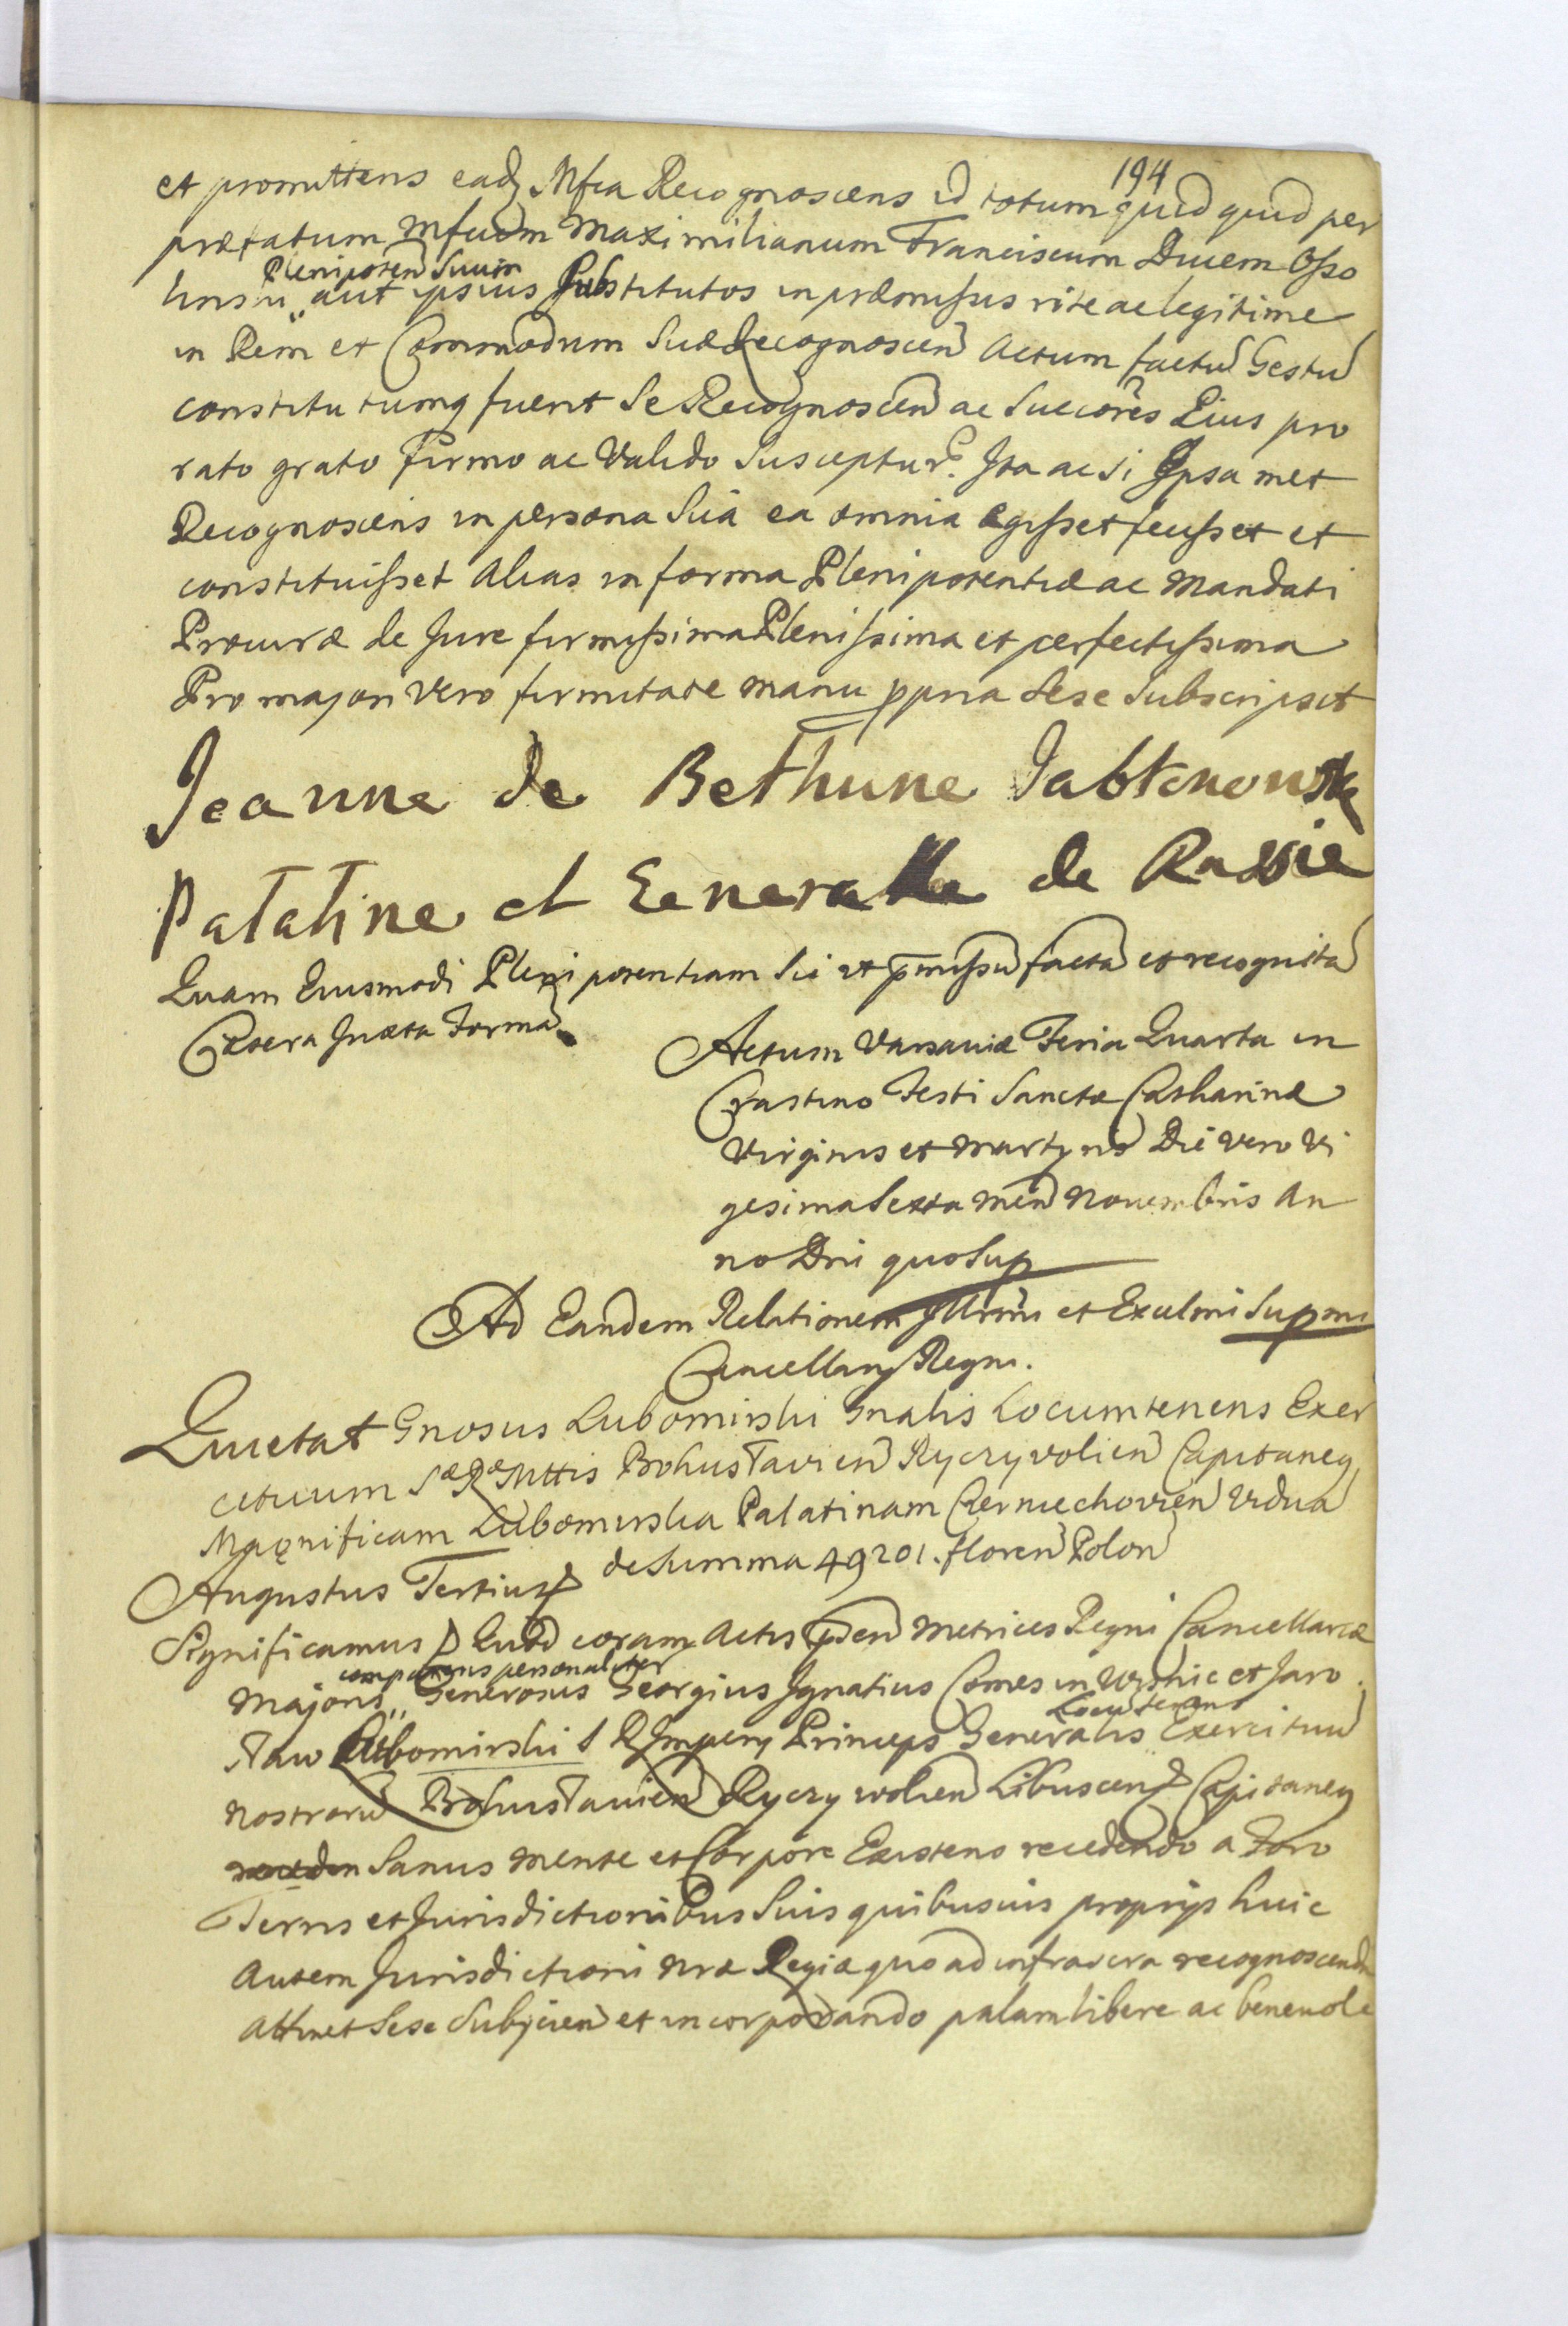 194
et promittens ead Mfca Recognoscens id totum quid quid per
præfatum Mfcum Maximilianum Franciscum Ducem Osso
linski Plenipoten Suum aut ipsius Substitutos in præmissis rite ac legitime
in Rem et Commodum Suæ Recognoscen Actum factu Gestu
constitutumq fuerit Se Recognoscen ac Succores Eius pro
rato grato firmo ac Valido Susceptur. Ita ac Si Ipsa met
Recognoscens in persona Sua ea omnia egisset fecisset et
constituisset Alias in forma Plenipotentiæ ac Mandati
Procuræ de Jure firmissima Plenissima et perfectissima
Pro majori vero firmitate manu ppria Sese Subscripsit
Jeanne de Bethune Jabłonowsk
Palatine et Generalle de Russie
Quam Eiusmodi Plenipotentiam Sic ut pmissu facta et recognita
Cætera Juxta Forma
Actum Varsaviæ Feria Quarta in
Crastino Festi Sanctæ Catharinæ
Virginis et Martyris Die vero Vi
gesima Sexta Men Novembris An
no Dni quo Sup
Ad Eandem Relationem Illrmi et Exclmi Supmi
Cancellarij Regni.
Quietat Gnosus Lubomirski Gnalis Locumtenens Exer
cituum Sæ Ræ Mttis Bohuslavien Ryczyvolien Capitaneq
Magnificam Lubomirska Palatinam Czerniechovien Vidua
de Summa 49201. floren Polon
Augustus Tertius
Significamus Quod coram Actis psen Metrices Regni Cancellariæ
Majoris comparens personaliter Generosus Georgius Ignatius Comes in Wisnic et Jaro
slaw Lubomirski S R Imperij Princeps Generalis Locutenens Exercituu
nostroru Bohuslavien Ryczywolien Libuscen Capitaneq
Sanus Mente et Corpore Existens recedendo a Foro
Terris et Jurisdictionibus Suis quibusvis proprijs huic
Autem Jurisdictioni Nræ Regiæ quo ad infra scra recognoscenda
Attinet Sese Subjicien et incorporando palam libere ac benevole